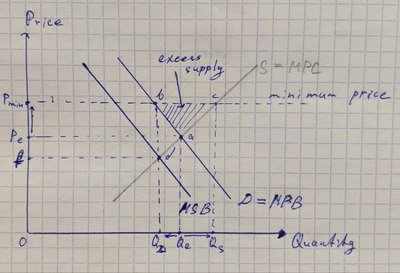 Price
excess
supply
S = MPC
Pmin
b
c
minimum price
Pe
a
d
MSB
D = MPB
0
QD
Qe
Qs
Quantity